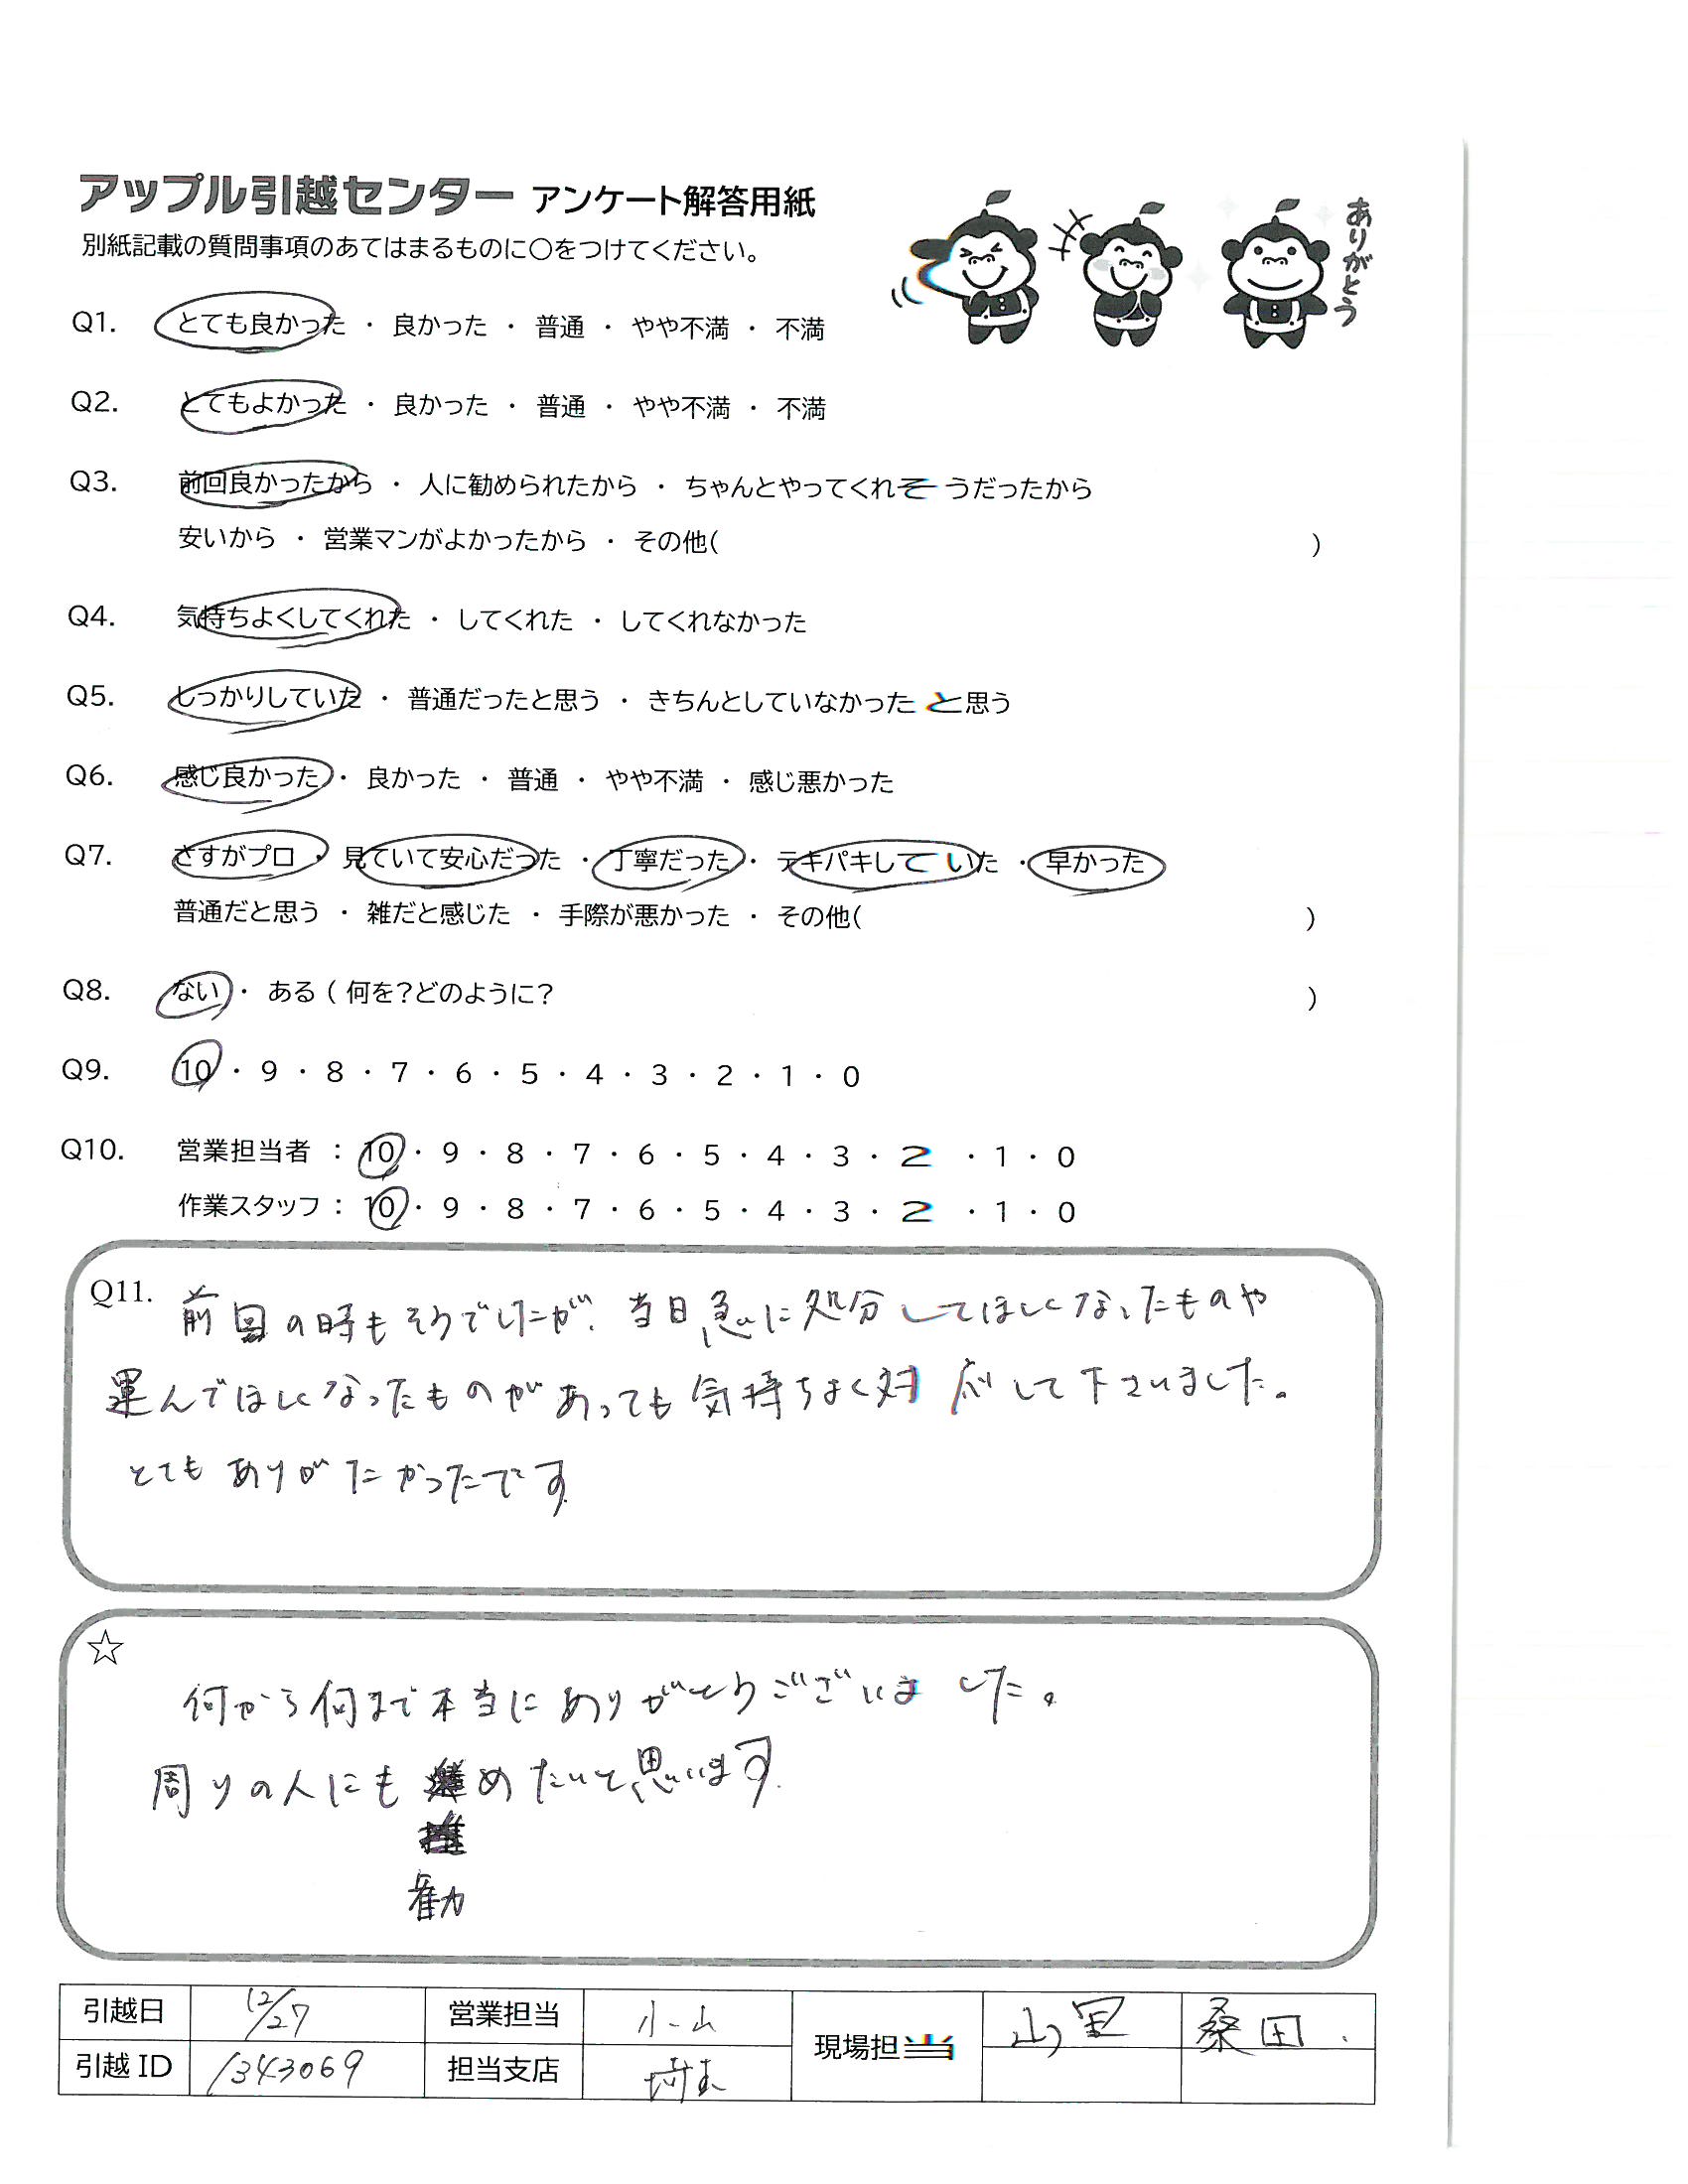 アップル引越センター アンケート解答用紙
別紙記載の質問事項のあてはまるものに○をつけてください。
ありがとう
Q1. とても良かった ・ 良かった ・ 普通 ・ やや不満 ・ 不満
Q2. とてもよかった ・ 良かった ・ 普通 ・ やや不満 ・ 不満
Q3. 前回良かったから ・ 人に勧められたから ・ ちゃんとやってくれそうだったから
安いから ・ 営業マンがよかったから ・ その他( )
Q4. 気持ちよくしてくれた ・ してくれた ・ してくれなかった
Q5. しっかりしていた ・ 普通だったと思う ・ きちんとしていなかったと思う
Q6. 感じ良かった ・ 良かった ・ 普通 ・ やや不満 ・ 感じ悪かった
Q7. さすがプロ ・ 見ていて安心だった ・ 丁寧だった ・ テキパキしていた ・ 早かった
普通だと思う ・ 雑だと感じた ・ 手際が悪かった ・ その他( )
Q8. ない ・ ある ( 何を?どのように? )
Q9. 10 ・ 9 ・ 8 ・ 7 ・ 6 ・ 5 ・ 4 ・ 3 ・ 2 ・ 1 ・ 0
Q10. 営業担当者 : 10 ・ 9 ・ 8 ・ 7 ・ 6 ・ 5 ・ 4 ・ 3 ・ 2 ・ 1 ・ 0
作業スタッフ : 10 ・ 9 ・ 8 ・ 7 ・ 6 ・ 5 ・ 4 ・ 3 ・ 2 ・ 1 ・ 0
Q11. 前回の時もそうでしたが、当日急に処分してほしくなったものや
運んでほしくなったものがあっても気持ちよく対応して下さいました。
とてもありがたかったです
☆
何から何まで本当にありがとうございました。
周りの人にも めたいと思います
勧
引越日 12/27 営業担当 小山 現場担当 山里 桑田
引越 ID 1343069 担当支店 埼玉